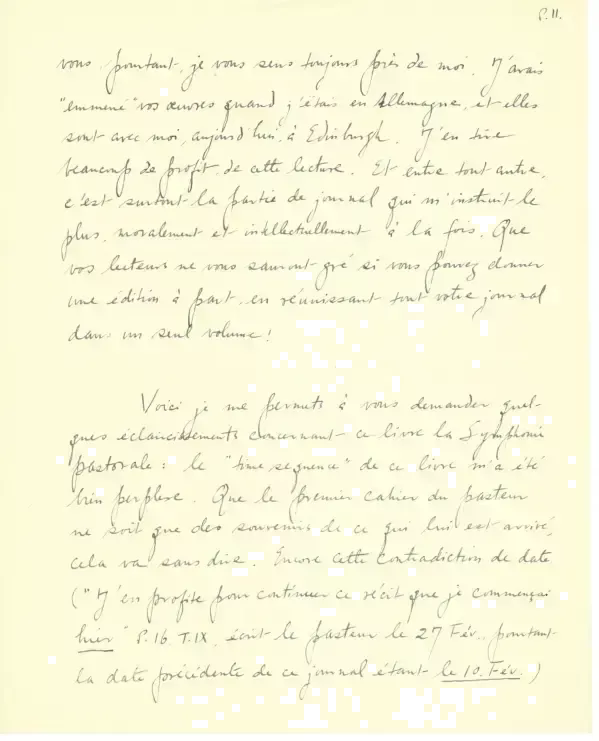 P. II.
vous pourtant, je vous sens toujours près de moi. J'avais
"emmené" vos œuvres quand j'étais en Allemagne, et elles
sont avec moi, aujourd'hui, à Edinburgh. J'en tire
beaucoup de profit, de cette lecture. Et entre tout autre,
c'est surtout la partie de journal qui m'instruit le
plus, moralement et intellectuellement à la fois. Que
vos lecteurs ne vous sauront gré si vous pouvez donner
une édition à part, en réunissant tout votre journal
dans un seul volume!
Voici je me permets à vous demander quel-
ques éclaircissements concernant ce livre la Symphonie
pastorale: le "time sequence" de ce livre m'a été
bien perplexe. Que le premier cahier du pasteur
ne soit que des souvenirs de ce qui lui est arrivé,
cela va sans dire. Encore cette contradiction de date
("J'en profite pour continuer ce récit que je commençai
hier" P.16. T.IX, écrit le pasteur le 27 Fév., pourtant
la date précédente de ce journal étant le 10. Fév.)